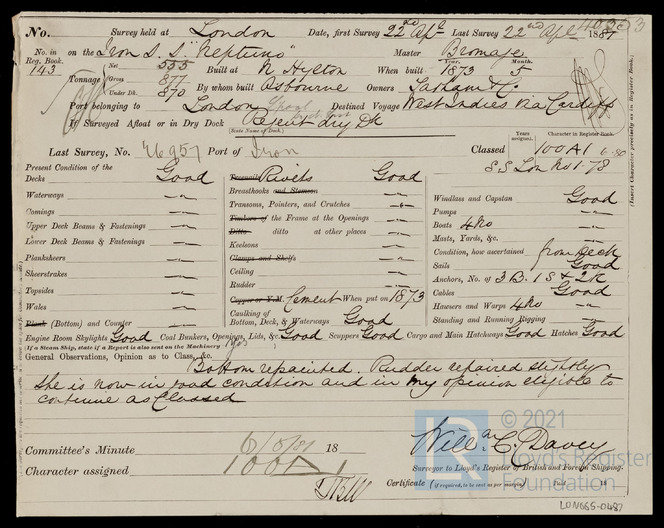 No. Survey held at London Date, first Survey 22nd Apl Last Survey 22nd Apl 1881
No. in Reg. Book. 143 on the Iron S. S. "Neptuno" Master Bromage
Tonnage Net 555 Gross 877 Under Dk. 870 Built at N Hylton When built Year. 1873 Month. 5
By whom built Osbourne Owners
Port belonging to London Destined Voyage West Indies via Cardiff
If Surveyed Afloat or in Dry Dock Regent dry Dk
(State Name of Dock.)
Last Survey, No. 46957 Port of Iron Classed Years assigned. Character in Register Book. 100A1
S S Lon No 1-78
(Insert Character precisely as in Register Book.)
Present Condition of the
Decks Good
Waterways "
Comings "
Upper Deck Beams & Fastenings "
Lower Deck Beams & Fastenings "
Plankssheers "
Sheerstrakes "
Topsides "
Wales "
Plank (Bottom) and Counter "
Treenails Rivets Good
Breasthooks and Stemson "
Transoms, Pointers, and Crutches "
Timbers of the Frame at the Openings "
Ditto ditto at other places "
Keelsons "
Clamps and Shelfs "
Ceiling "
Rudder "
Copper or Y.M. Cement When put on 1873
Caulking of
Bottom, Deck, & Waterways Good
Windlass and Capstan Good
Pumps "
Boats 4 No "
Masts, Yards, &c. "
Condition, how ascertained from Deck
Sails Good
Anchors, No. of 3 B. 1 S & 2 K
Cables Good
Hawsers and Warps 4 No "
Standing and Running Rigging "
Engine Room Skylights Good Coal Bunkers, Openings, Lids, &c. Good Scuppers Good Cargo and Main Hatchways Good Hatches Good
(If a Steam Ship, state if a Report is also sent on the Machinery) Yes
General Observations, Opinion as to Class, &c.
Bottom repainted. Rudder repaired slightly
She is now in good condition and in my opinion eligible to
continue as Classed
Committee's Minute 18
Character assigned 100A1
Willm. C. Davey
Surveyor to Lloyd's Register of British and Foreign Shipping.
Certificate (if required, to be sent as per margin) Paid 18
© 2021
Lloyd's Register
Foundation
LON665-0487